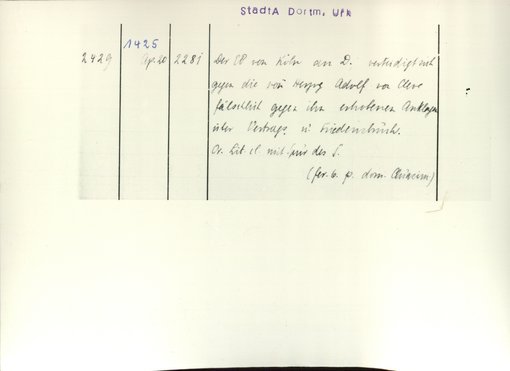 StadtA Dortm, Urk
1425
2429 Apr. 20 2281 Der EB von Köln an D. verteidigt sich
gegen die vom Herzog Adolf von Cleve
fälschlich gegen ihn erhobenen Anklagen
über Vertrags u Friedensbruch.
Or. Lit. cl. mit Spur des S.
(fer. 6. p. dom.